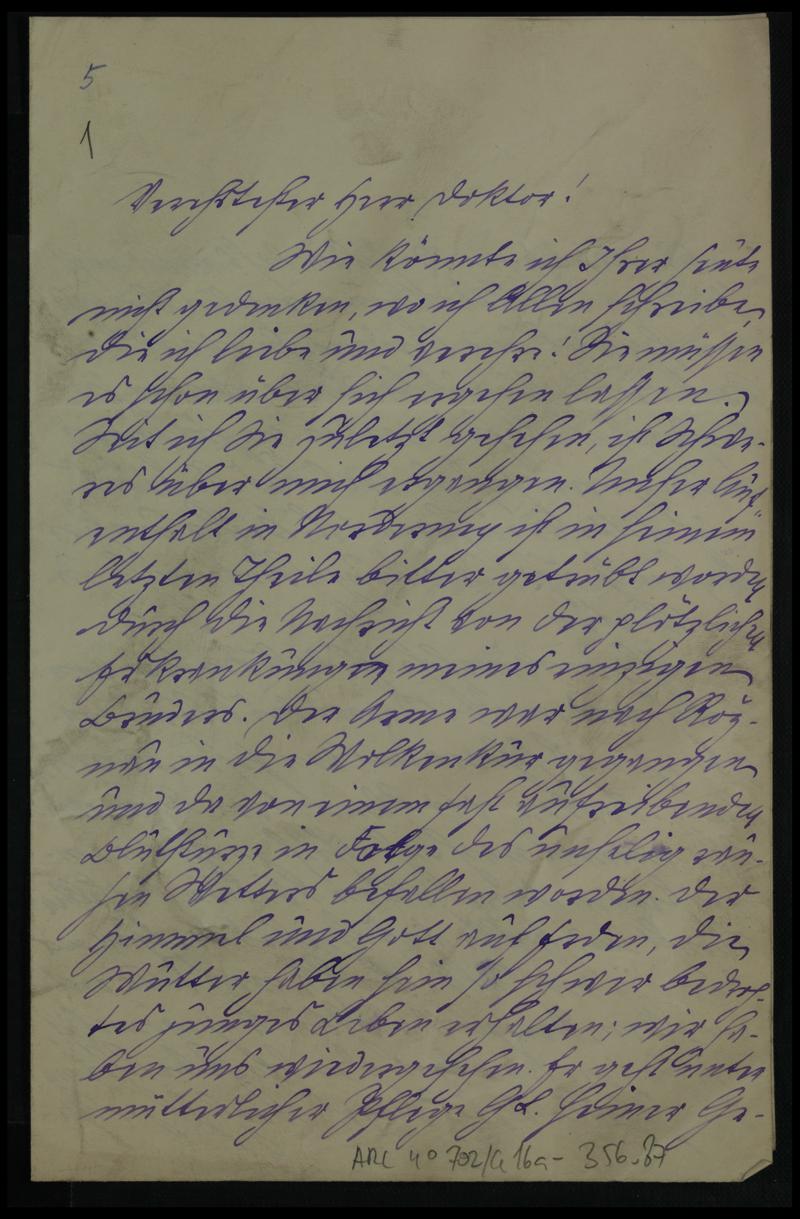 5
1
Verehrtester Herr Doktor!
Wie könnte ich Ihrer heute
nicht gedenken, wo ich Allen schreibe,
die ich liebe und verehre! Sie müssen
es schon über sich ergehen lassen.
Seit ich Sie zuletzt gesehen, ist Schwe-
res über mich ergangen. Unser Auf-
enthalt in Norderney ist in seinem
letzten Theile bitter getrübt worden
durch die Nachricht von der plötzlichen
Erkrankung meines einzigen
Bruders. Der Arme war nach Rož-
nau in die Molkenkur gegangen
und da von einem fast aufreibenden
Blutsturze in Folge des unselig rau-
hen Wetters befallen worden. Der
Himmel und Gott auf Erden, die
Mutter haben sein so schwer bedroh-
tes junges Leben erhalten; wir ha-
ben uns wiedergesehen. Er geht unter
mütterlicher Pflege GL. seiner Ge-
ARC 4° 792/G 16a - 356.87